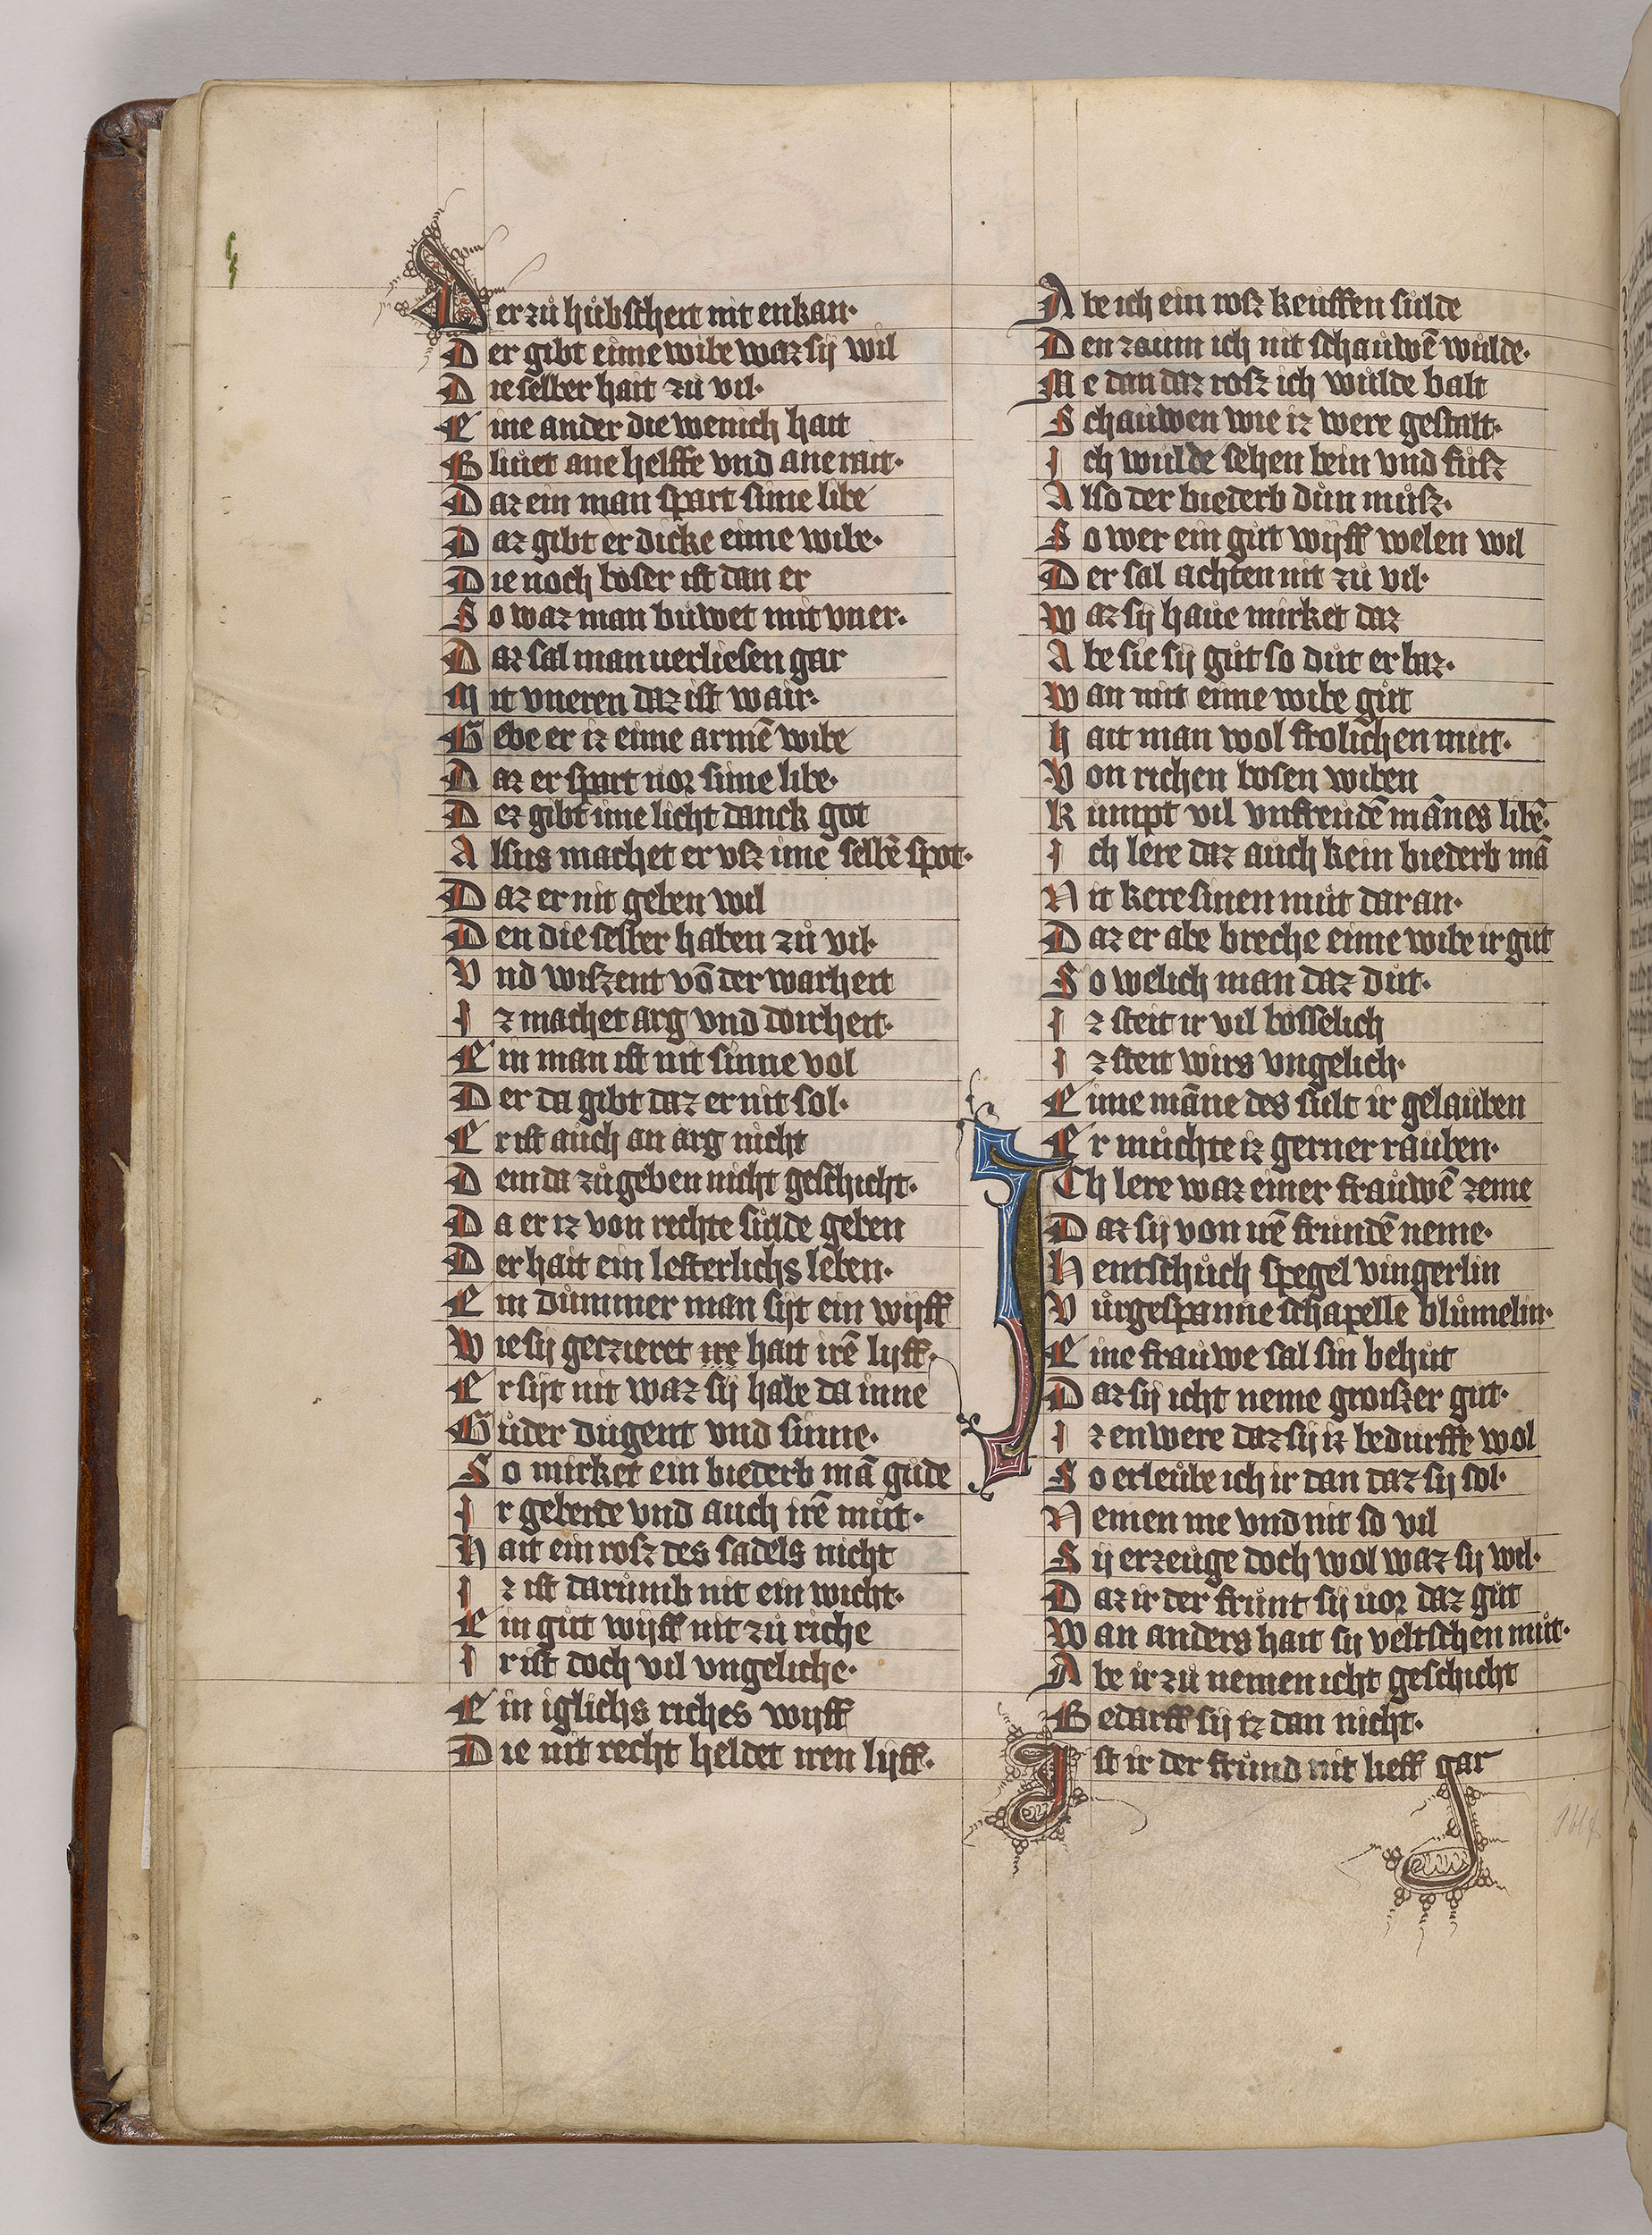 Der zů hůbscheit nit enkan·
Der gibt eime wibe waz sij wil
Die selber hait zů vil·
Eine ander die wenich hait
Bliuet ane helffe vnd ane rait·
Daz ein man spart sime libe
Daz gibt er dicke eime wibe·
Die noch boser ist dan er
So waz man buwet mit vner·
Daz sal man uerliesen gar
Mit vneren daz ist wair·
Gebe er iz eime armē wibe
Daz er spart uor sime libe·
Dez gibt ime licht danck got
Alsus machet er vsz ime selbē spot·
Daz er nit geben wil
Den die selber haben zů vil·
Vnd wiszent vō der warheit
Iz machet arg vnd doirheit·
Ein man ist nit sinne vol
Der da gibt daz er nit sol·
Er ist auch an arg nicht
Dem da zů geben nicht geschicht·
Da er iz von rechte sulde geben
Der hait ein lesterlichs leben·
Ein dummer man sijt ein wijff
Wie sij gecziéret ire hait irē lijff·
Er sijt nit waz sij habe da inne
Gůder dugent vnd sinne·
So mirket ein biederb mā gude
Ir geberde vnd auch irē můt·
Hait ein rosz des sadels nicht
Iz ist darůmb nit ein wicht·
Ein gůt wijff nit zů riche
Ir ist doch vil vngeliche·
Ein iglichs riches wijff
Die nit recht heldet iren lijff·
Abe ich ein rosz keuffen sulde
Den zaum ich nit schauwē wůlde·
Me dan daz rosz ich wulde balt
Schauwen wie iz were gestalt·
Ich wulde sehen bein vnd fůsz
Also der biederb důn můsz·
So wer ein gůt wijff welen wil
Der sal achten nit zů vil·
Waz sij haue mirket daz
Abe sie sij gůt so důt er baz·
Wan mit eime wibe gůt
Hait man wol frolichen můt·
Von richen bosen wiben
Kumpt vil vnfreudē mānes libē·
Ich lere daz auch kein biederb mā
Nit kere sinen můt dar an·
Daz er abe breche eime wibe ir gůt
So welich man daz důt·
Iz steit ir vil bosselich
Iz steit wirs vngelich·
Eime māne des sult ir gelauben
Er můchte iz gerner rauben·
ICh lere waz einer frauwē zeme
Daz sij von irē frundē neme·
Hentschůch spegel vingerlin
Vůrgespanne schapelle blůmelin·
Eine frauwe sal sin behůt
Daz sij icht neme groiszer gůt·
Iz en were daz sij iz bedurffe wol
So erleube ich ir dan daz sij sol·
Nemen me vnd nit so vil
Sij erzeuge doch wol waz sij wil·
Daz ir der frůnt sij uor daz gůt
Wan anders hait sij veltschen můt·
Abe ir zů nemen icht geschicht
Bedarff sij iz dan nicht·
Ist ir der frůnd nit lieff gar